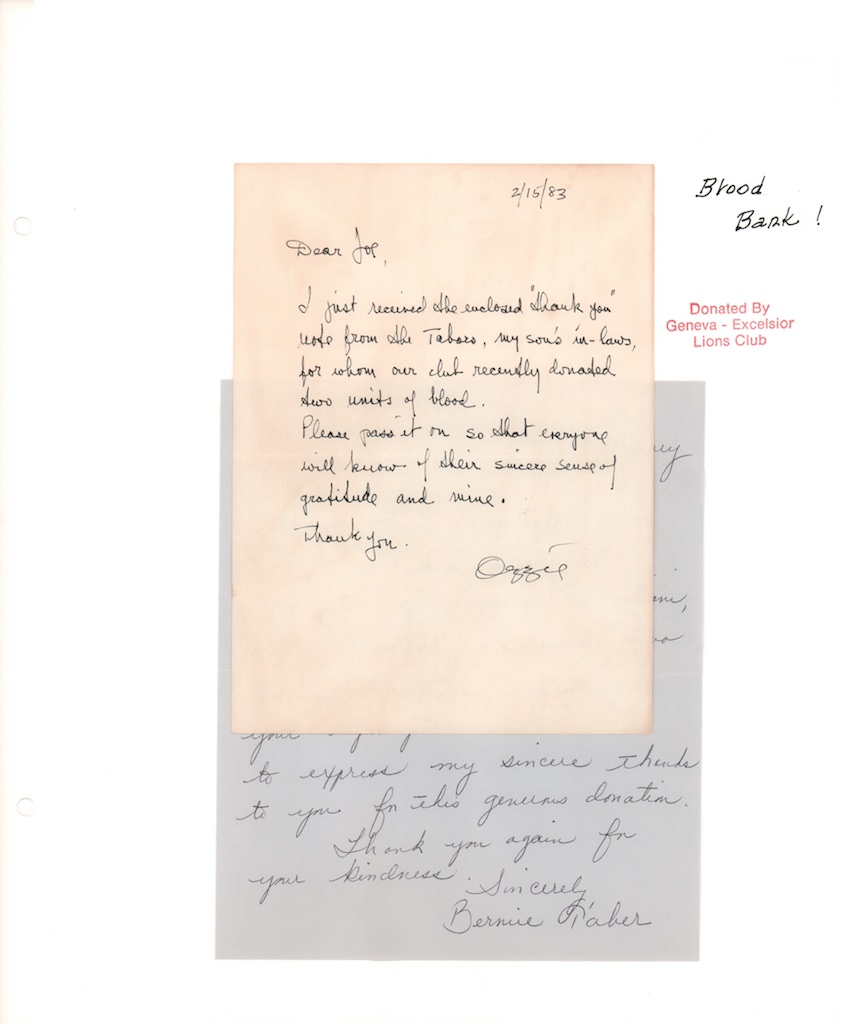 2/15/83
Blood
Bank !
Dear Joe,
Donated By
Geneva - Excelsior
Lions Club
I just received the enclosed "thank you"
note from the Tabors, my son's in-laws,
for whom our club recently donated
two units of blood.
Please pass it on so that everyone
will know of their sincere sense of
gratitude and mine.
Thank you.
Ozzie
your
to express my sincere thanks
to you for this generous donation.
Thank you again for
your kindness.
Sincerely
Bernice Taber